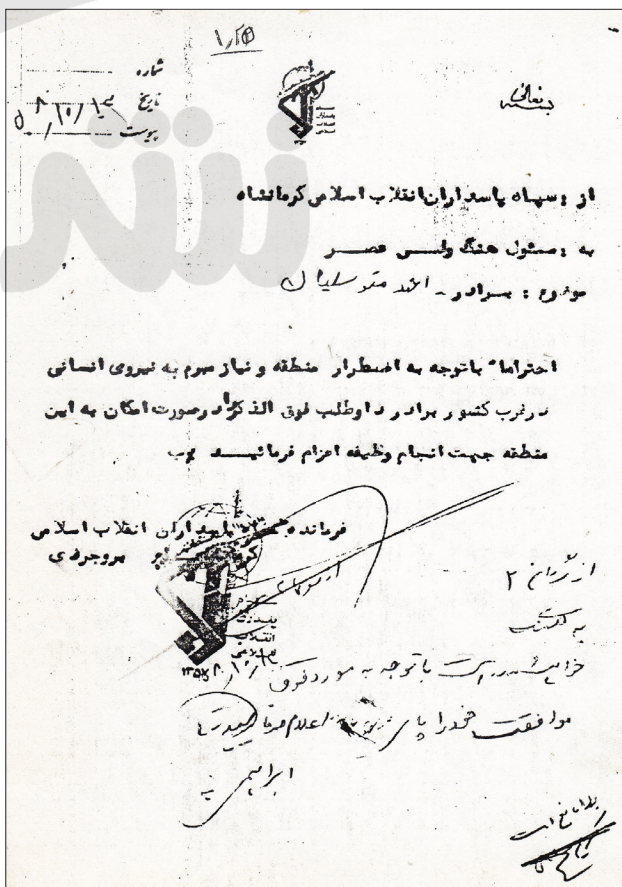 بسمه تعالی
شماره
تاریخ ۱۰/۱۳
پیوست
از : سپاه پاسداران انقلاب اسلامی کرمانشاه
به : مسئول هنگ ولی عصر
موضوع : برادر - احمد متوسلیان
احتراما" باتوجه به اضطرار منطقه و نیاز مبرم به نیروی انسانی
درغرب کشور برادر داوطلب فوق الذکر را درصورت امکان به این
منطقه جهت انجام وظیفه اعزام فرمائید
فرمانده سپاه پاسداران انقلاب اسلامی
بروجردی
از گردان ۲
به
باتوجه به مورد فوق
موافقت خود را اعلام فرمائید
ابراهیمی